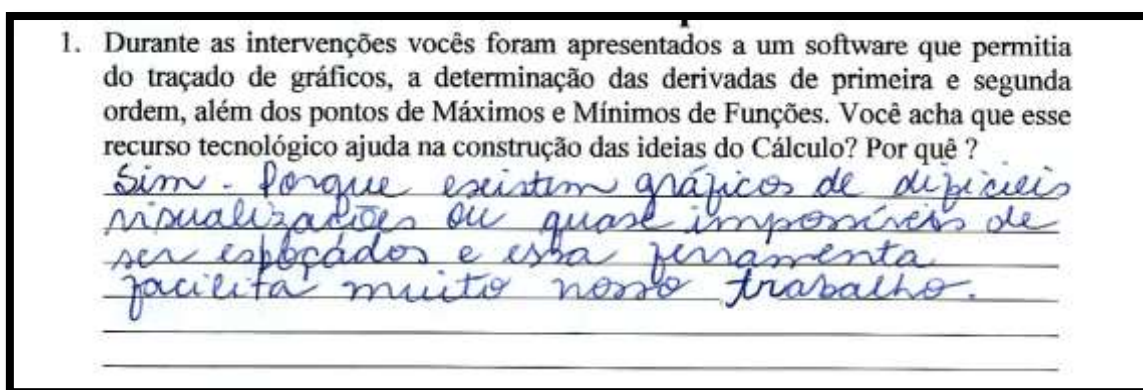 1. Durante as intervenções vocês foram apresentados a um software que permitia
do traçado de gráficos, a determinação das derivadas de primeira e segunda
ordem, além dos pontos de Máximos e Mínimos de Funções. Você acha que esse
recurso tecnológico ajuda na construção das ideias do Cálculo? Por quê ?
Sim. Porque existem gráficos de difíceis
visualizações ou quase impossíveis de
ser esboçados e essa ferramenta
facilita muito nosso trabalho.